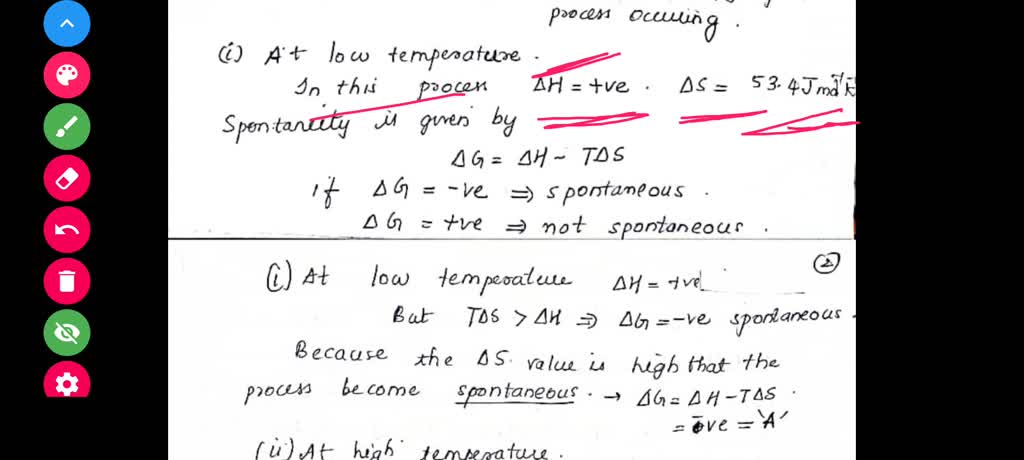 process occuring.
(i) At low temperature.
In this process ΔH = +ve. ΔS = 53.4 J mol⁻¹ K
Spontaneity is given by
ΔG = ΔH - TΔS
if ΔG = -ve ⇒ spontaneous.
ΔG = +ve ⇒ not spontaneous.
②
(i) At low temperature ΔH = +ve
But TΔS > ΔH ⇒ ΔG = -ve spontaneous.
Because the ΔS value is high that the
process become spontaneous. → ΔG = ΔH - TΔS.
= -ve = 'A'
(ii) At high temperature.